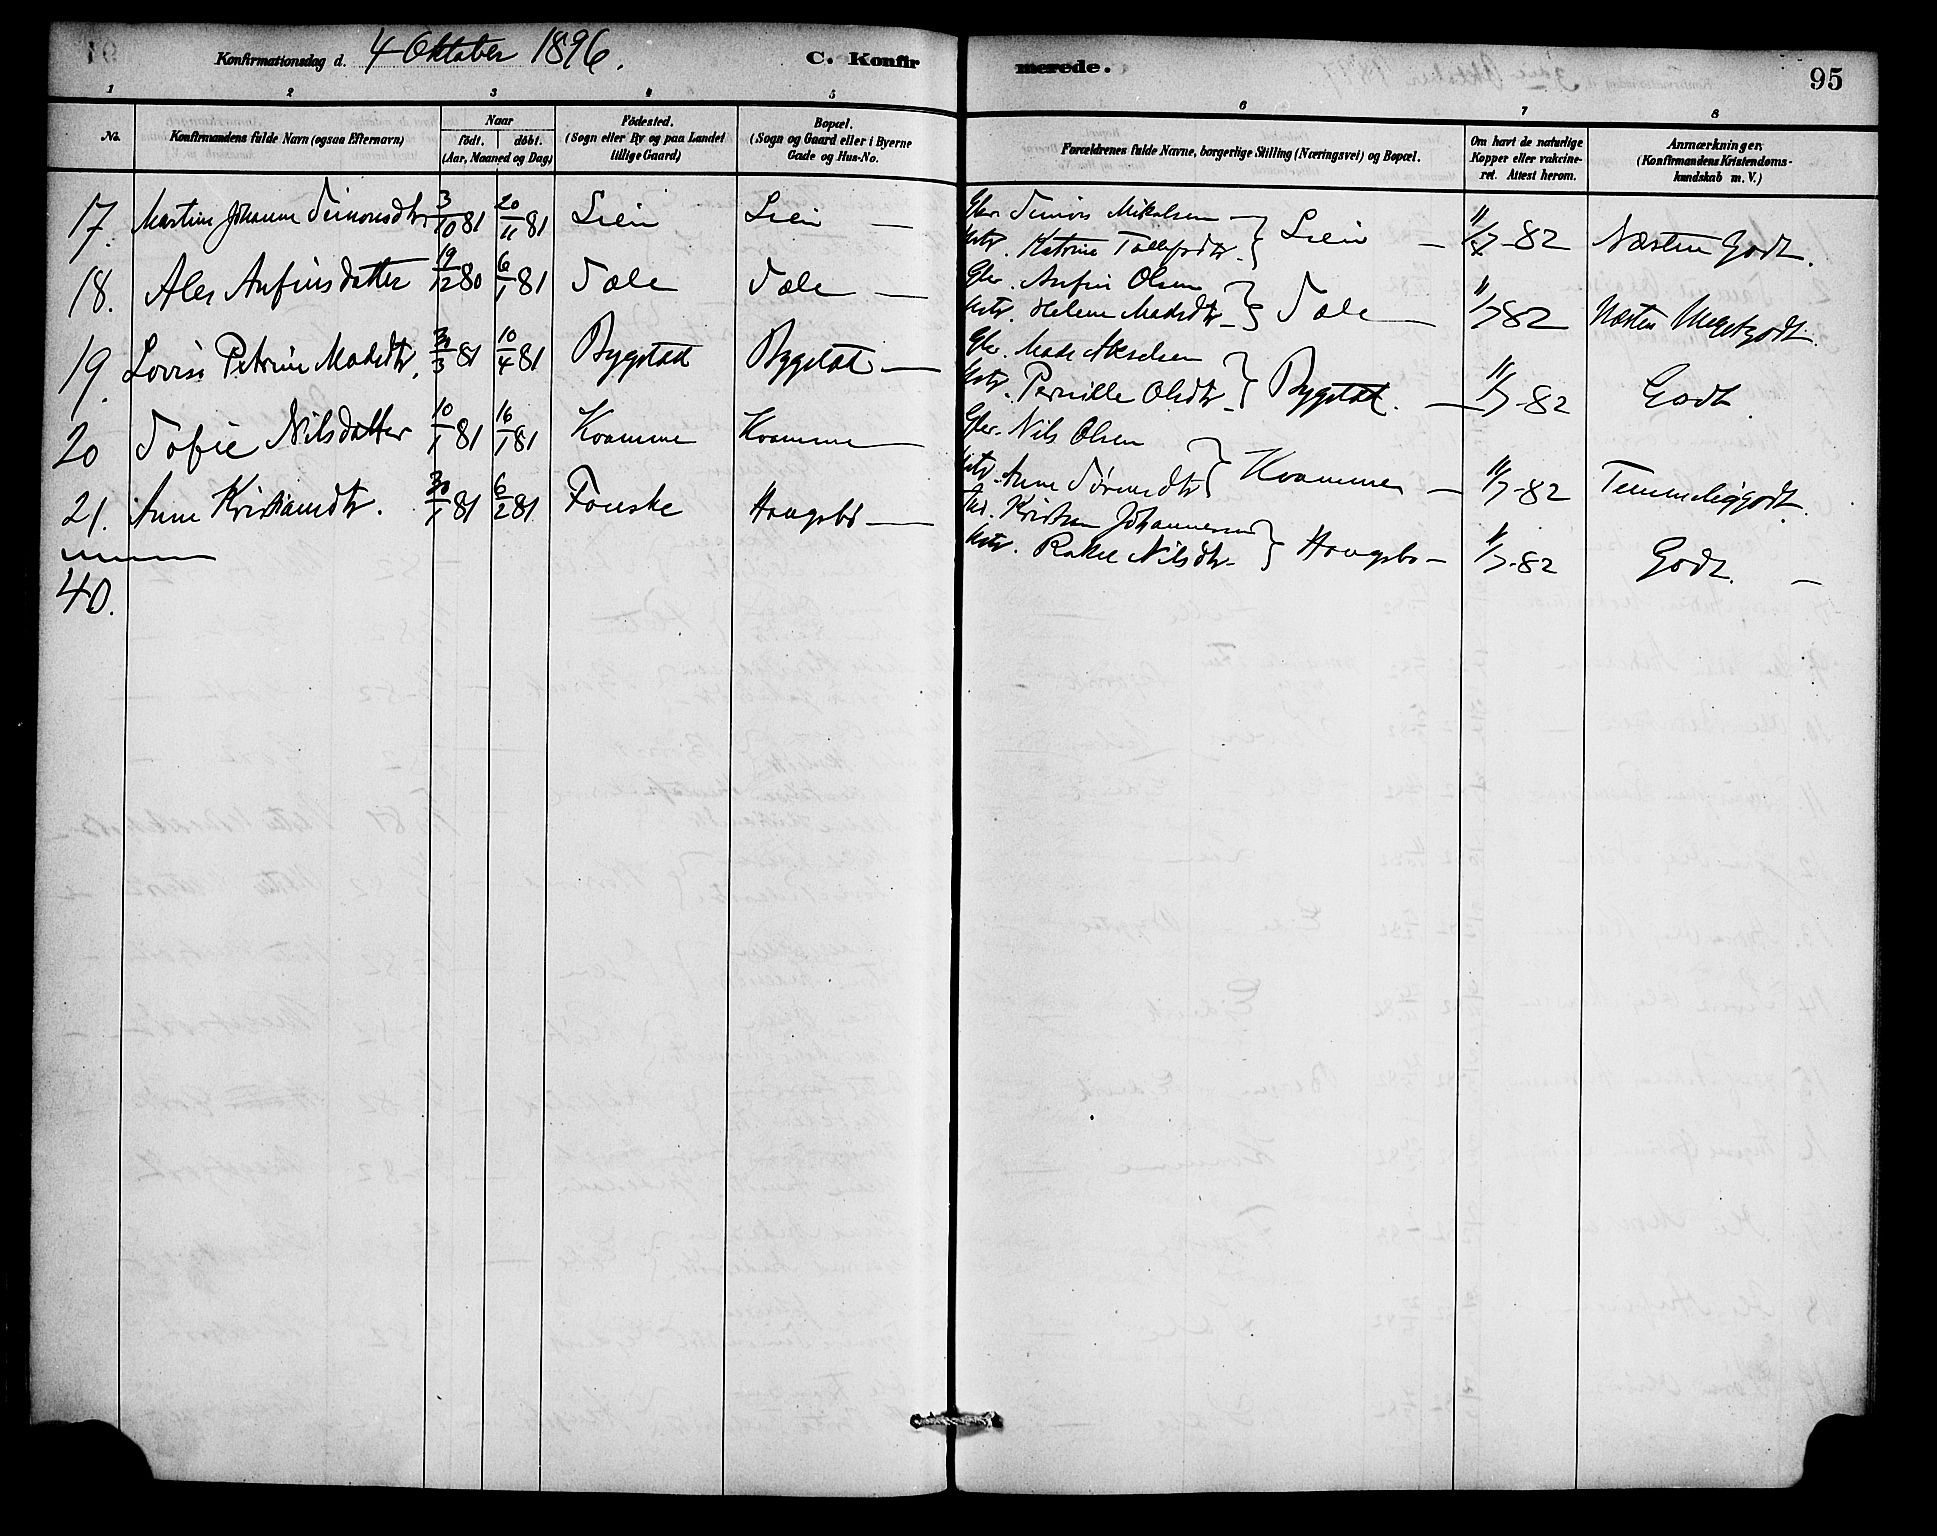 Konfirmationsdag d. 4 Oktober 1896. C. Konfirmerede. 95
1 2 3 4 5 6 7 8
No.
Konfirmandens fulde Navn (ogsaa Efternavn)
Naar
født. døbt.
(Aar, Maaned og Dag)
Fødested.
(Sogn eller By og paa Landet
tillige Gaard)
Bopæl.
(Sogn og Gaard eller i Byerne
Gade og Hus-No.
Forældrenes fulde Navne, borgerlige Stilling (Næringsvei) og Bopæl.
Om havt de naturlige
Kopper eller vakcine-
ret. Attest herom.
Anmærkninger.
(Konfirmandens Kristendoms-
kundskab m. V.)
17. Martine Johanne Simonsdtr 3/10 81 20/11 81 Lien Lien — Gbr. Simon Mikalsen —
Hstr. Katrine Tollefsdtr. } Lien — 82 Næsten Godt.
18. Ales Anfinsdatter 19/12 80 6/1 81 Sæle Sæle — Gbr. Anfin Olsen
Hstr. Helene Madsdtr — } Sæle — 11/7 82 Næsten Megetgodt.
19. Lovise Petrine Madsdtr. 3/3 81 10/4 81 Bygstad Bygstad — Gbr. Mads Akselsen
Hstr. Pernille Olsdtr — } Bygstad. — 11/7-82 Godt.
20 Sofie Nilsdatter 10/1 81 16/1 81 Kvamme Kvamme — Gbr. Nils Olsen
Hstr. Anne Sørensdtr } Kvamme — 11/7-82 Temmeliggodt.
21. Anne Kristiansdtr. 30/1 81 6/2 81 Fonske Haugsbø — Kristian Johannessen
Hstr. Rakel Nilsdtr — } Haugsbø — 11/7-82 Godt. —
40.